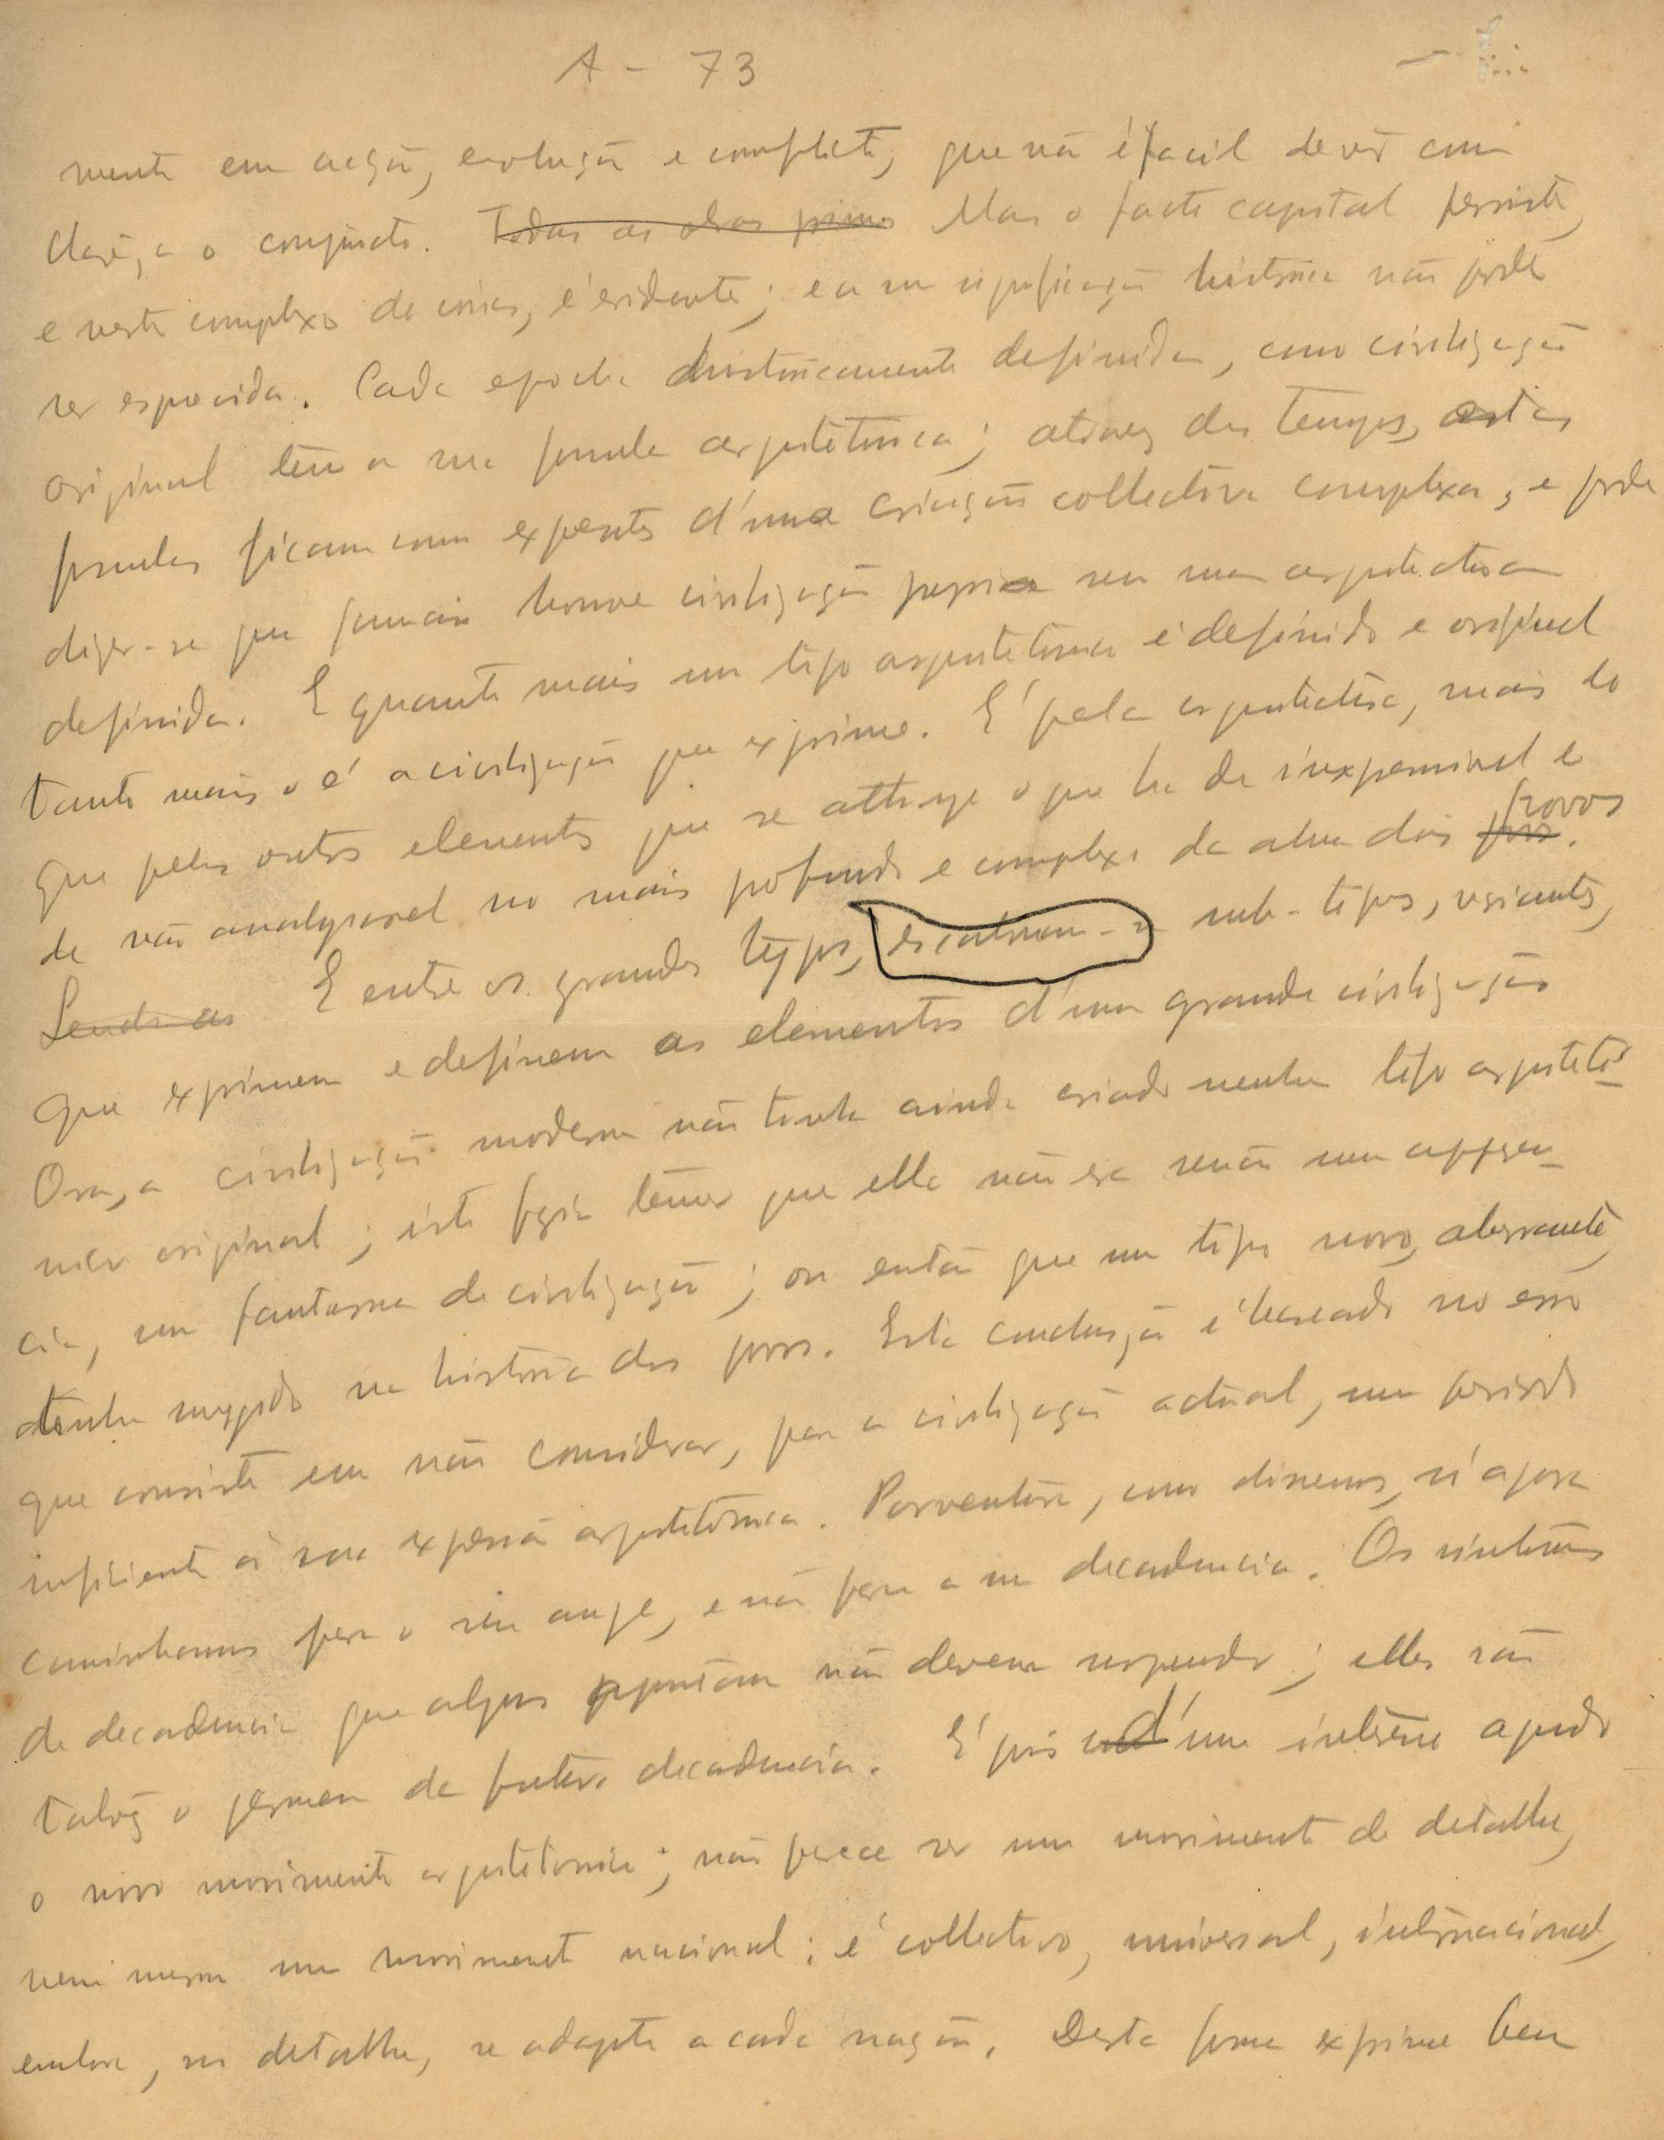 A - 73
mente em acção, evolução e conflicto, que não é facil de vêr com
clarêza o conjuncto. Todas as obras primas Mas o facto capital persiste,
e neste complexo de coisas, é evidente; e a sua significação historica não póde
ser esquecida. Cada epocha historicamente definida, como civilização
original tem a sua formula arquitetonica; atravez dos tempos, estas
formulas ficam como expoentes d'uma criação collectiva complexa, e póde
dizer-se que jamais houve civilização propria sem uma arquitectura
definida. E quanto mais um tipo arquitetonico é definido e original
tanto mais o é a civilização que exprime. É pela arquitectura, mais do
que pelos outros elementos que se attinge o que ha de inexprimivel e
de não analysavel no mais profundo e complexo da alma dos povos povos.
Sendo as E entre os grandes typos, escalonam-se sub-tipos, variantes,
que exprimem e definem os elementos d'uma grande civilização
Ora, a civilização moderna não tinha ainda criado nenhum tipo arquitetó-
nico original; isto fazia temer que ella não era senão uma apparen-
cia, um fantasma de civilização; ou então que um tipo novo, aberrante,
tenha surgido na historia dos povos. Esta conclusão é baseada no erro
que consiste em não considerar, para a civilização actual, um periodo
suficiente á sua expressão arquitetónica. Porventura, como dissemos, só agora
caminhamos para o seu auge, e não para a sua decadencia. Os sintomas
de decadencia que alguns apontam não devem surpreender; elles são
talvez o germen da futura decadencia. É pois d'um interesse agudo
o novo movimento arquitetonico; não parece ser um movimento de detalhe,
nem mesmo um movimento nacional: é collectivo, universal, internacional,
embora, no detalhe, se adapte a cada nação. Desta forma exprime bem